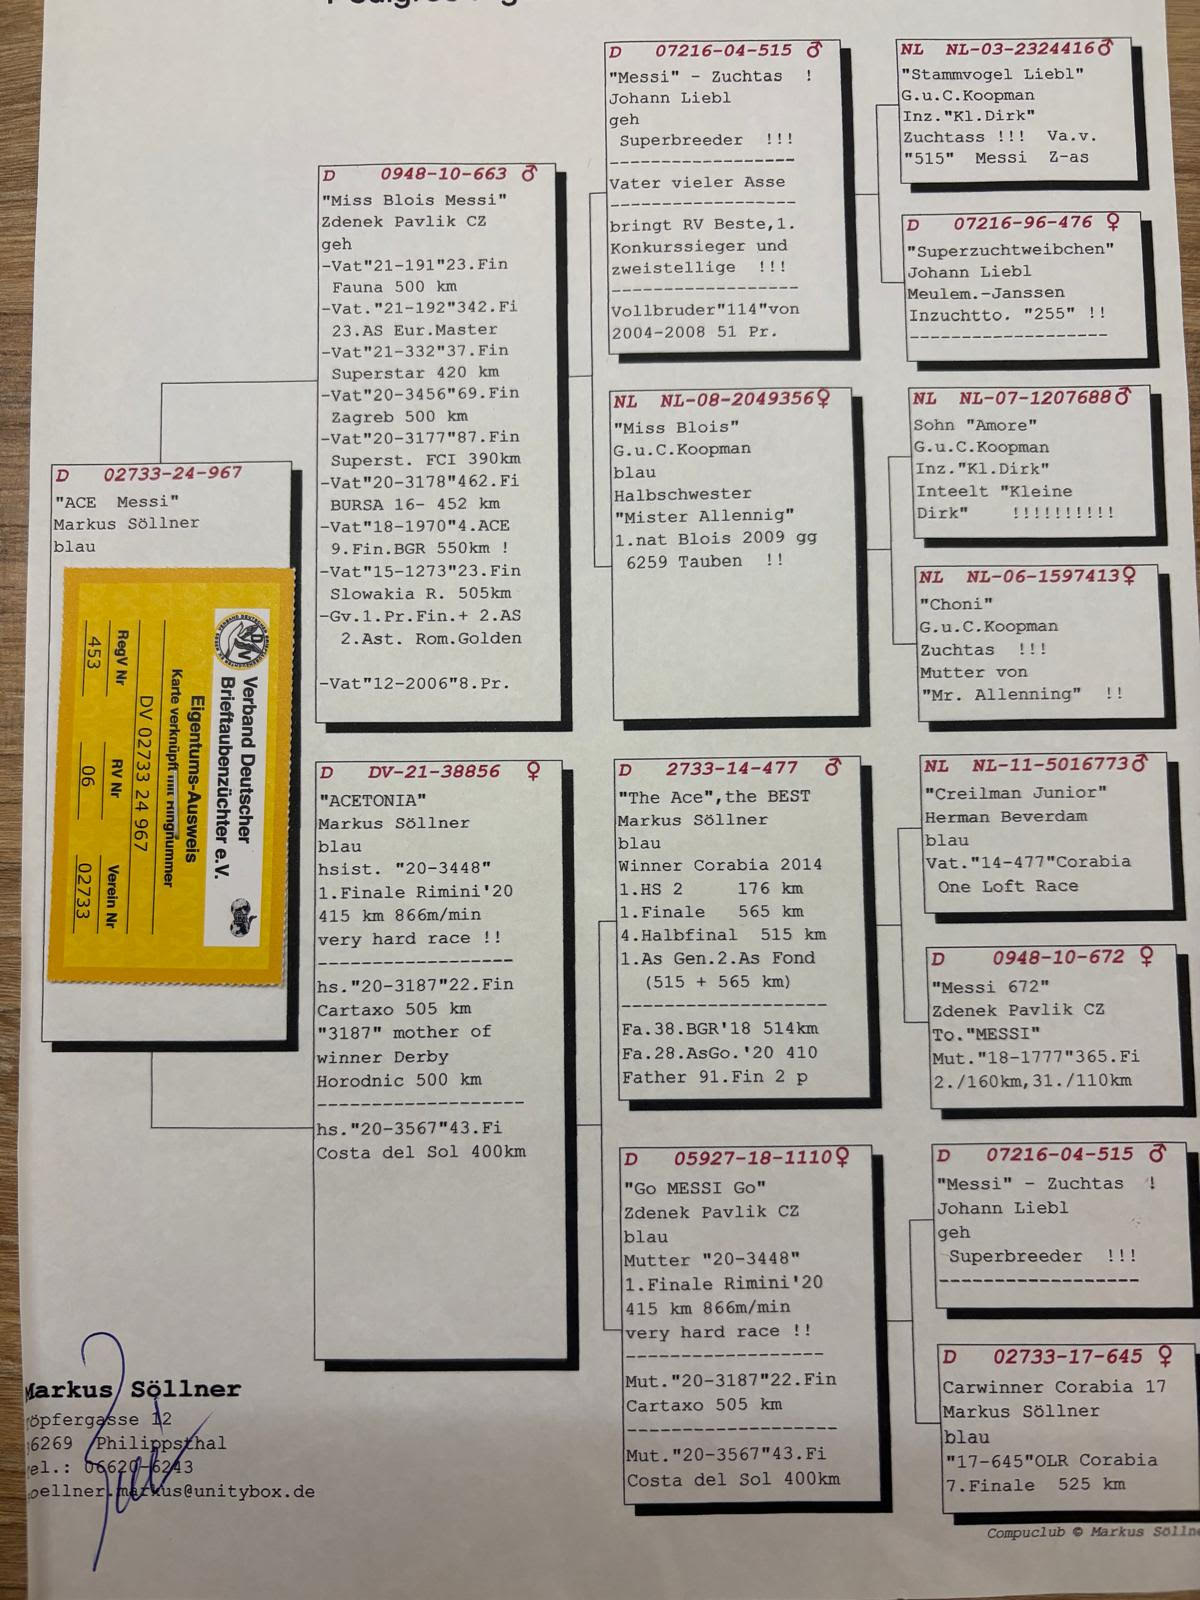 D 02733-24-967
"ACE Messi"
Markus Söllner
blau
Verband Deutscher
Brieftaubenzüchter e.V.
Eigentums-Ausweis
Karte verknüpft mit Ringnummer
DV 02733 24 967
RegV Nr RV Nr Verein Nr
453 06 02733
D 0948-10-663 ♂
"Miss Blois Messi"
Zdenek Pavlik CZ
geh
-Vat"21-191"23.Fin
Fauna 500 km
-Vat."21-192"342.Fi
23.AS Eur.Master
-Vat"21-332"37.Fin
Superstar 420 km
-Vat"20-3456"69.Fin
Zagreb 500 km
-Vat"20-3177"87.Fin
Superst. FCI 390km
-Vat"20-3178"462.Fi
BURSA 16- 452 km
-Vat"18-1970"4.ACE
9.Fin.BGR 550km !
-Vat"15-1273"23.Fin
Slowakia R. 505km
-Gv.1.Pr.Fin.+ 2.AS
2.Ast. Rom.Golden
-Vat"12-2006"8.Pr.
D DV-21-38856 ♀
"ACETONIA"
Markus Söllner
blau
hsist. "20-3448"
1.Finale Rimini'20
415 km 866m/min
very hard race !!
------------------
hs."20-3187"22.Fin
Cartaxo 505 km
"3187" mother of
winner Derby
Horodnic 500 km
-------------------
hs."20-3567"43.Fi
Costa del Sol 400km
D 07216-04-515 ♂
"Messi" - Zuchtas !
Johann Liebl
geh
Superbreeder !!!
------------------
Vater vieler Asse
------------------
bringt RV Beste,1.
Konkurssieger und
zweistellige !!!
------------------
Vollbruder"114"von
2004-2008 51 Pr.
NL NL-08-2049356♀
"Miss Blois"
G.u.C.Koopman
blau
Halbschwester
"Mister Allennig"
1.nat Blois 2009 gg
6259 Tauben !!
D 2733-14-477 ♂
"The Ace",the BEST
Markus Söllner
blau
Winner Corabia 2014
1.HS 2 176 km
1.Finale 565 km
4.Halbfinal 515 km
1.As Gen.2.As Fond
(515 + 565 km)
-------------------
Fa.38.BGR'18 514km
Fa.28.AsGo.'20 410
Father 91.Fin 2 p
D 05927-18-1110♀
"Go MESSI Go"
Zdenek Pavlik CZ
blau
Mutter "20-3448"
1.Finale Rimini'20
415 km 866m/min
very hard race !!
------------------
Mut."20-3187"22.Fin
Cartaxo 505 km
-------------------
Mut."20-3567"43.Fi
Costa del Sol 400km
NL NL-03-2324416♂
"Stammvogel Liebl"
G.u.C.Koopman
Inz."Kl.Dirk"
Zuchtass !!! Va.v.
"515" Messi Z-as
D 07216-96-476 ♀
"Superzuchtweibchen"
Johann Liebl
Meulem.-Janssen
Inzuchtto. "255" !!
------------------
NL NL-07-1207688♂
Sohn "Amore"
G.u.C.Koopman
Inz."Kl.Dirk"
Inteelt "Kleine
Dirk" !!!!!!!!!!
NL NL-06-1597413♀
"Choni"
G.u.C.Koopman
Zuchtas !!!
Mutter von
"Mr. Allenning" !!
NL NL-11-5016773♂
"Creilman Junior"
Herman Beverdam
blau
Vat."14-477"Corabia
One Loft Race
D 0948-10-672 ♀
"Messi 672"
Zdenek Pavlik CZ
To."MESSI"
Mut."18-1777"365.Fi
2./160km,31./110km
D 07216-04-515 ♂
"Messi" - Zuchtas !
Johann Liebl
geh
Superbreeder !!!
------------------
D 02733-17-645 ♀
Carwinner Corabia 17
Markus Söllner
blau
"17-645"OLR Corabia
7.Finale 525 km
Markus Söllner
öpfergasse 12
6269 Philippsthal
el.: 06620-6243
oellner.markus@unitybox.de
Compuclub © Markus Söllne